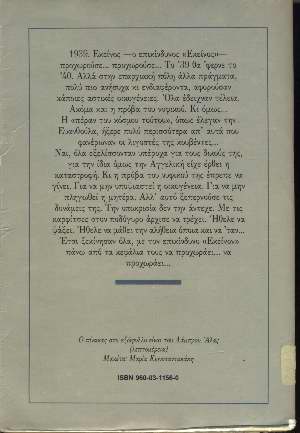 1939. Εκείνος —ο επικίνδυνος «Εκείνος»—
προχωρούσε... προχωρούσε... Το '39 θα 'φερνε το
'40. Αλλά στην επαρχιακή πόλη άλλα πράγματα,
πολύ πιο ανήσυχα κι ενδιαφέροντα, αφορούσαν
κάποιες αστικές οικογένειες. Όλα έδειχναν τέλεια.
Ακόμα και η πρόβα του νυφικού. Κι όμως...
Η «πέραν του κόσμου τούτου», όπως έλεγαν την
Ευανθούλα, ήξερε πολύ περισσότερα απ' αυτά που
φανέρωναν οι λιγοστές της κουβέντες...
Ναι, όλα εξελίσσονταν υπέροχα για τους δικούς της,
για την ίδια όμως την Αγγελική είχε έρθει η
καταστροφή. Κι η πρόβα του νυφικού της έπρεπε να
γίνει. Για να μην υποψιαστεί η οικογένεια. Για να μην
πληγωθεί η μητέρα. Αλλ' αυτό ξεπερνούσε τις
δυνάμεις της. Την υποκρισία δεν την άντεχε. Με τις
καρφίτσες στον ποδόγυρο άρχισε να τρέχει... Ήθελε να
ψάξει. Ήθελε να μάθει την αλήθεια όποια και να 'ταν...
Έτσι ξεκίνησαν όλα, με τον επικίνδυνο «Εκείνον»
πάνω από τα κεφάλια τους να προχωράει... να
προχωράει...
Ο πίνακας στο εξώφυλλο είναι του Δήμητρη
(λεπτομέρεια)
Μακέτα: Μαρία Κωνσταντακάκη
ISBN 960-03-1156-0